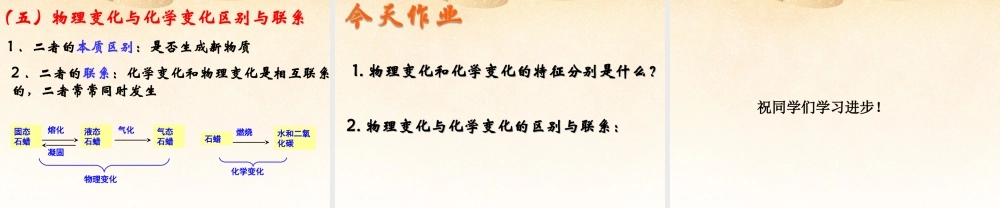 （五）物理变化与化学变化区别与联系
1、二者的本质区别：是否生成新物质
2、二者的联系：化学变化和物理变化是相互联系
的，二者常常同时发生
固态
石蜡
熔化
凝固
液态
石蜡
气化
气态
石蜡
物理变化
石蜡
燃烧
水和二氧
化碳
化学变化
今天作业
1.物理变化和化学变化的特征分别是什么？
2.物理变化与化学变化的区别与联系：
祝同学们学习进步！